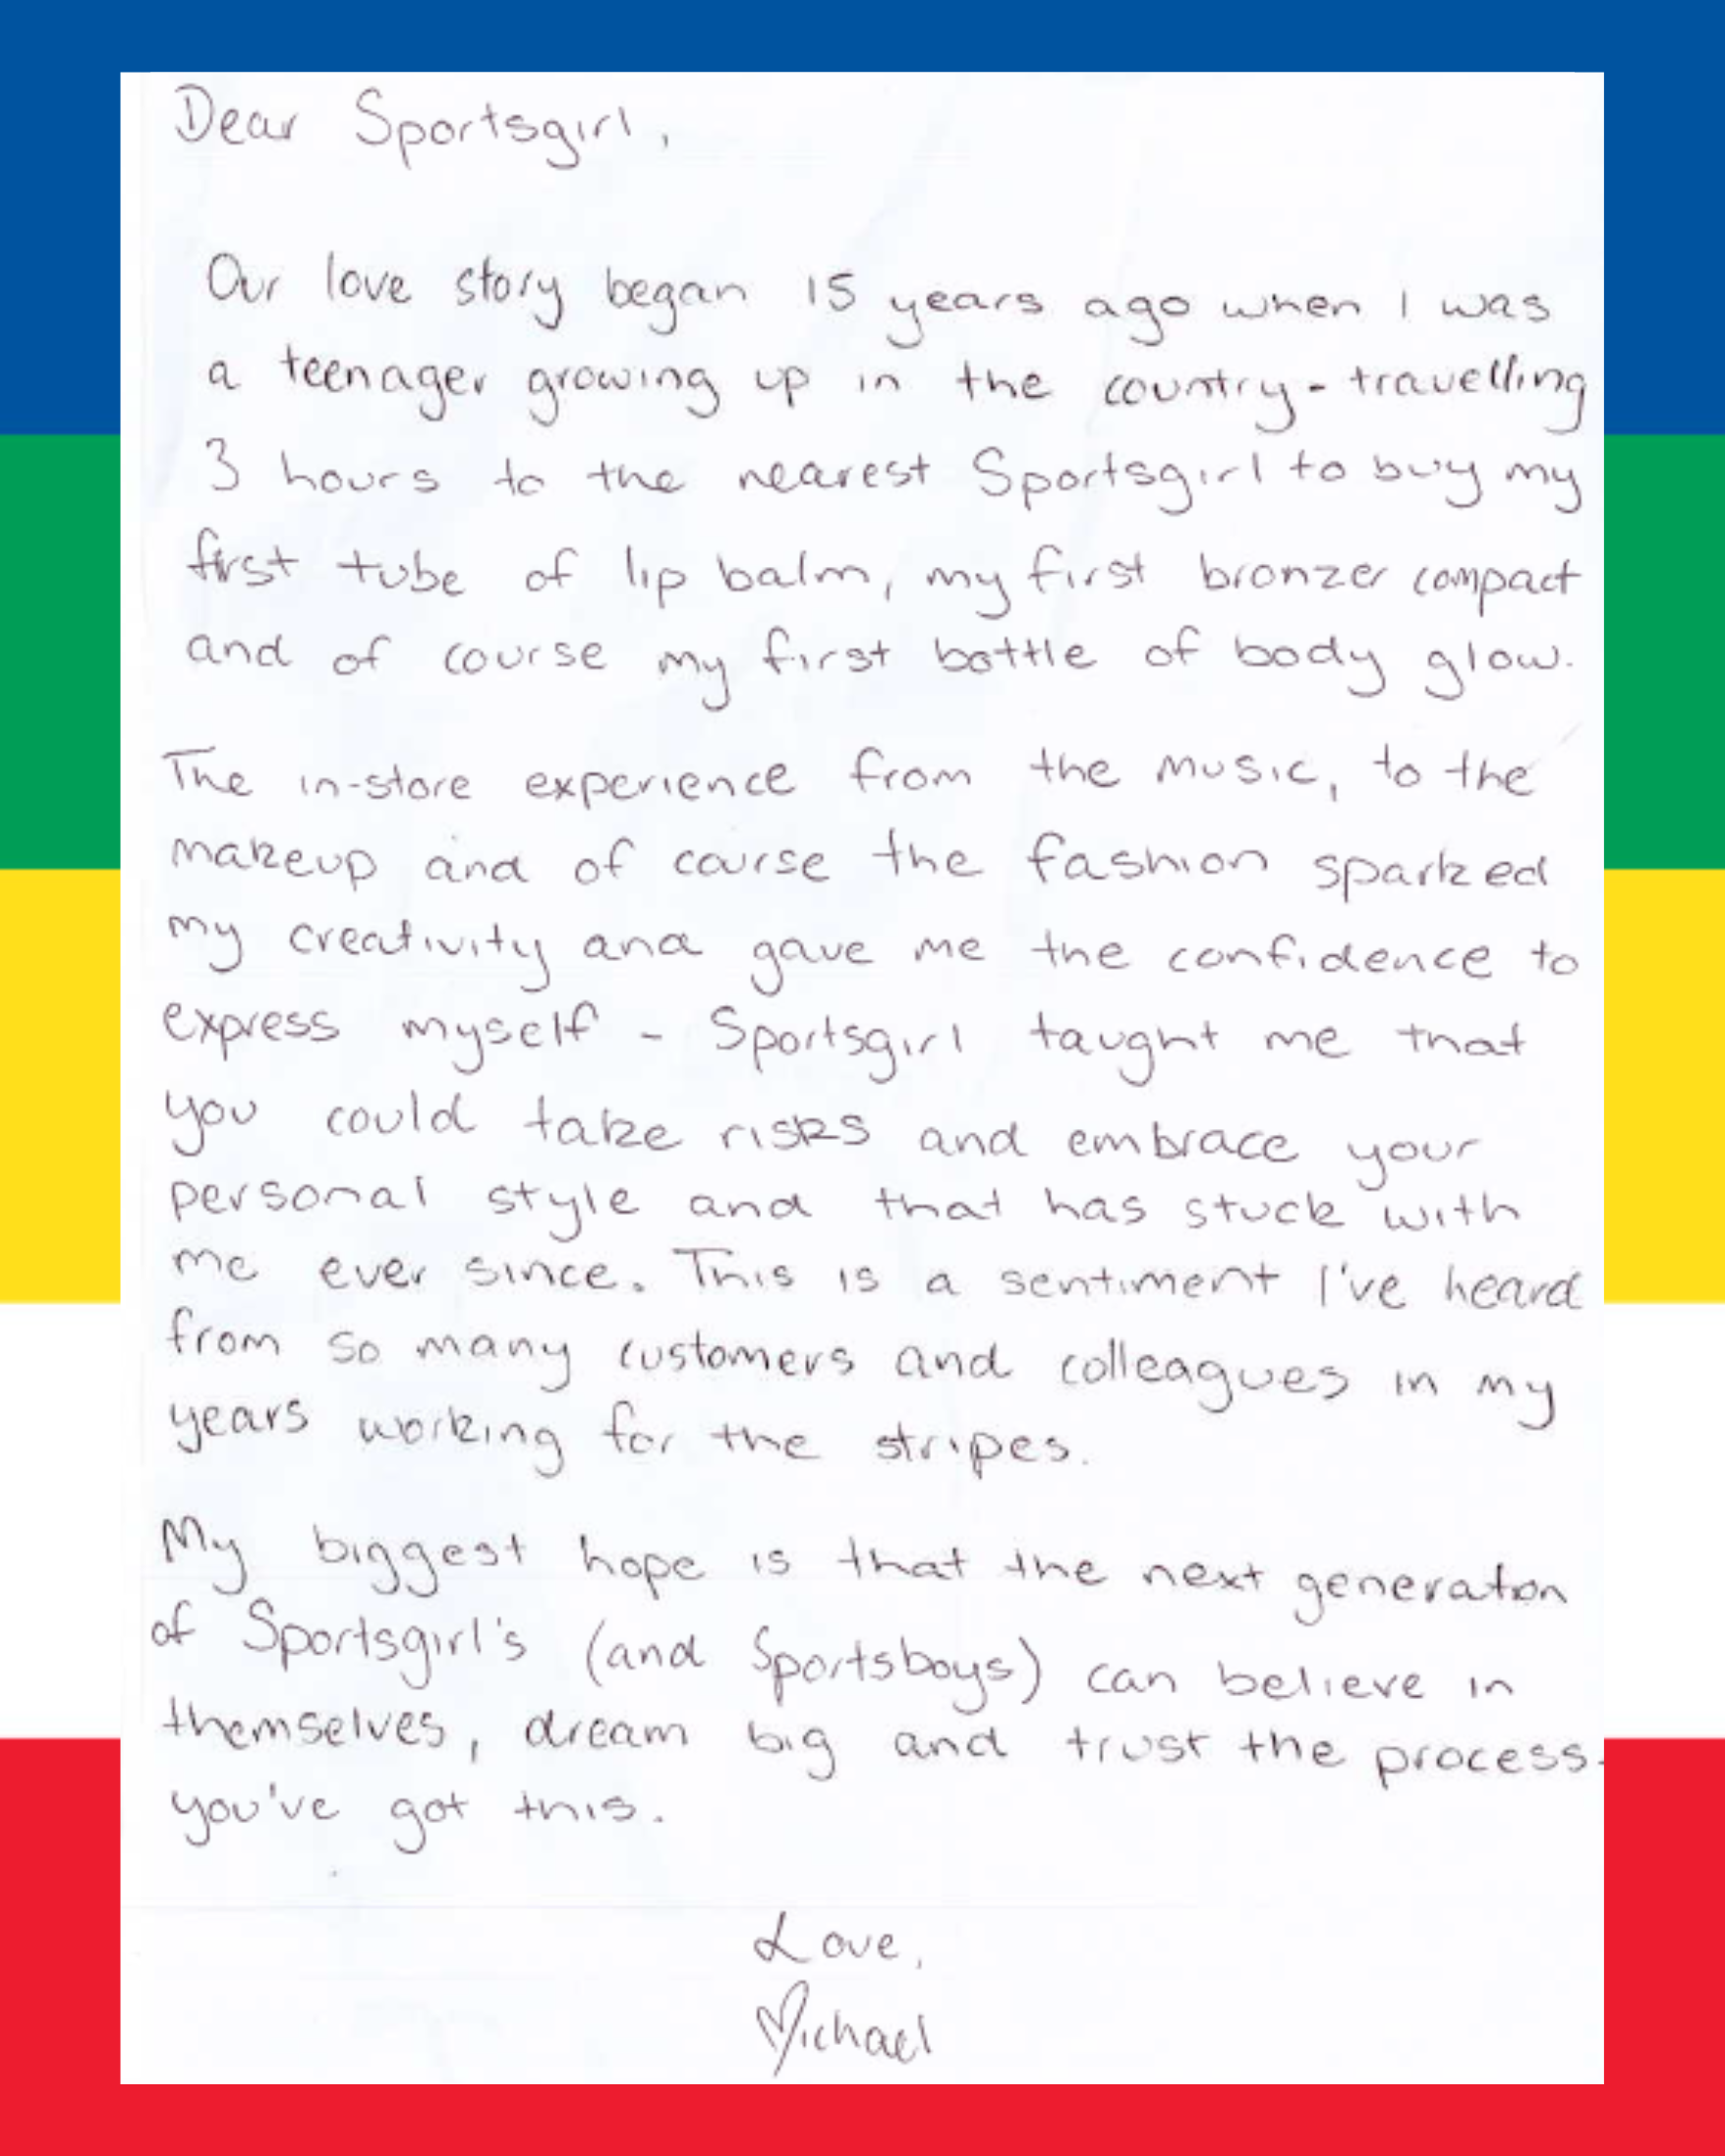 Dear Sportsgirl,
Our love story began 15 years ago when I was
a teenager growing up in the country - travelling
3 hours to the nearest Sportsgirl to buy my
first tube of lip balm, my first bronzer compact
and of course my first bottle of body glow.
The in-store experience from the music, to the
makeup and of course the fashion sparked
my creativity and gave me the confidence to
express myself - Sportsgirl taught me that
you could take risks and embrace your
personal style and that has stuck with
me ever since. This is a sentiment I've heard
from so many customers and colleagues in my
years working for the stripes.
My biggest hope is that the next generation
of Sportsgirl's (and Sportsboys) can believe in
themselves, dream big and trust the process.
you've got this.
Love,
Michael